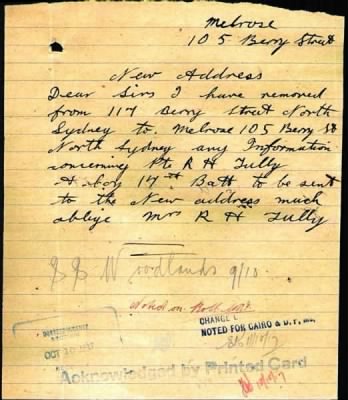 Melrose
105 Berry Street
New Address
Dear Sirs I have removed
from 117 Berry Street North
Sydney to. Melrose 105 Berry St
North Sydney any Information
concerning Pte R H Tully
A Coy 17th Batt to be sent
to the New address much
oblige Mrs R H Tully
Woodlands 9/10.
Noted on
OCT 10 1917
CHANGE
NOTED FOR CAIRO & D.T.
Acknowledged by Printed Card